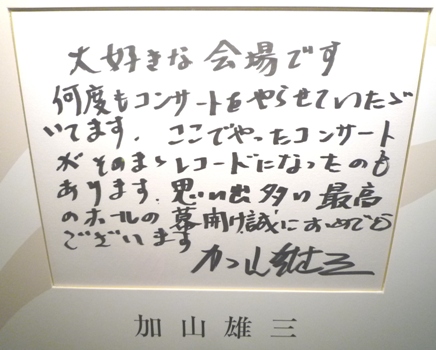 大好きな会場です
何度もコンサートをやらせていただ
いてます、ここでやったコンサート
がそのままレコードになったのも
あります、思い出多い最高
のホールの幕開け誠におめでとう
ございます
加山雄三
加山雄三